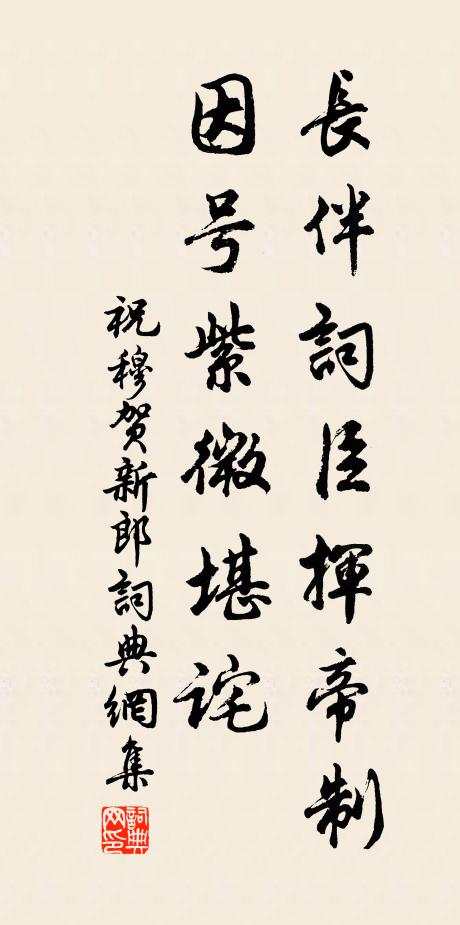 長伴詞臣揮帝制
因号紫微堪詫
祝穆贺新郎詞典網集
詞典网印